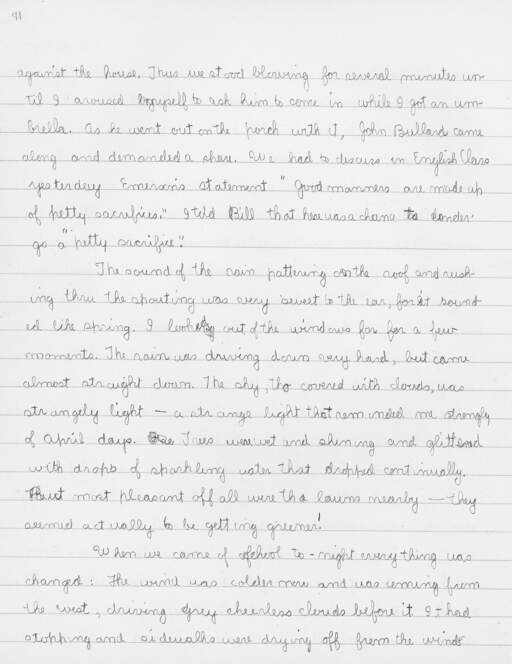 91
against the house. Thus we stood blowing for several minutes un-
til I aroused myself to ask him to come in while I got an um-
brella. As he went out on the porch with it, John Bullard came
along and demanded a share. We had to discuss in English Class
yesterday Emerson's statement "Good manners are made up
of petty sacrifices." I told Bill that here was a chance to under-
go a "petty sacrifice".
The sound of the rain pattering on the roof and rush-
ing thru the spouting was very sweet to the ear, for it sound-
ed like spring. I looked out of the windows for for a few
moments. The rain was driving down very hard, but came
almost straight down. The sky, tho covered with clouds, was
strangely light — a strange light that reminded me strongly
of April days. Trees were wet and shining and glittered
with drops of sparkling water that dropped continually.
But most pleasant off all were the lawns nearby — they
seemed actually to be getting greener!
When we came of school to-night everything was
changed: The wind was colder now and was coming from
the west, driving grey cheerless clouds before it. It had
stopping and sidewalks were drying off from the winds